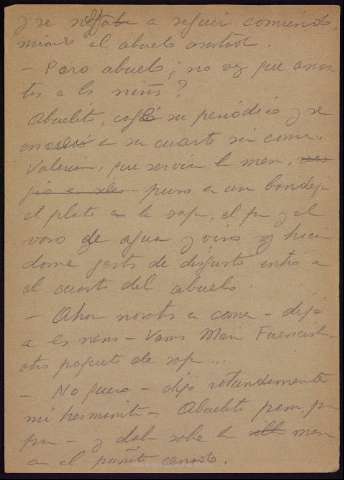 y se negaba a seguir comiendo,
mirando al abuelo asustado.
- Pero abuelo, ¿no ves que asus
tas a los niños?
Abuelito, cogió su periódico y se
a su cuarto sin comer.
Valeriana, que servía la mesa,
puso en una bandeja
el plato con la sopa, el pan y el
vaso de agua y vino y hacien
dome gestos de disgusto entró en
el cuarto del abuelo.
- Ahora nosotros a comer - dijo
a los nenes - Vamos Mari Fuencisla
otro poquito de sopa ...
- No quiero - dijo rotundamente
mi hermanito - Abuelito pam pam
pam - y daba sobre la mesa
con el puñito cerrado.